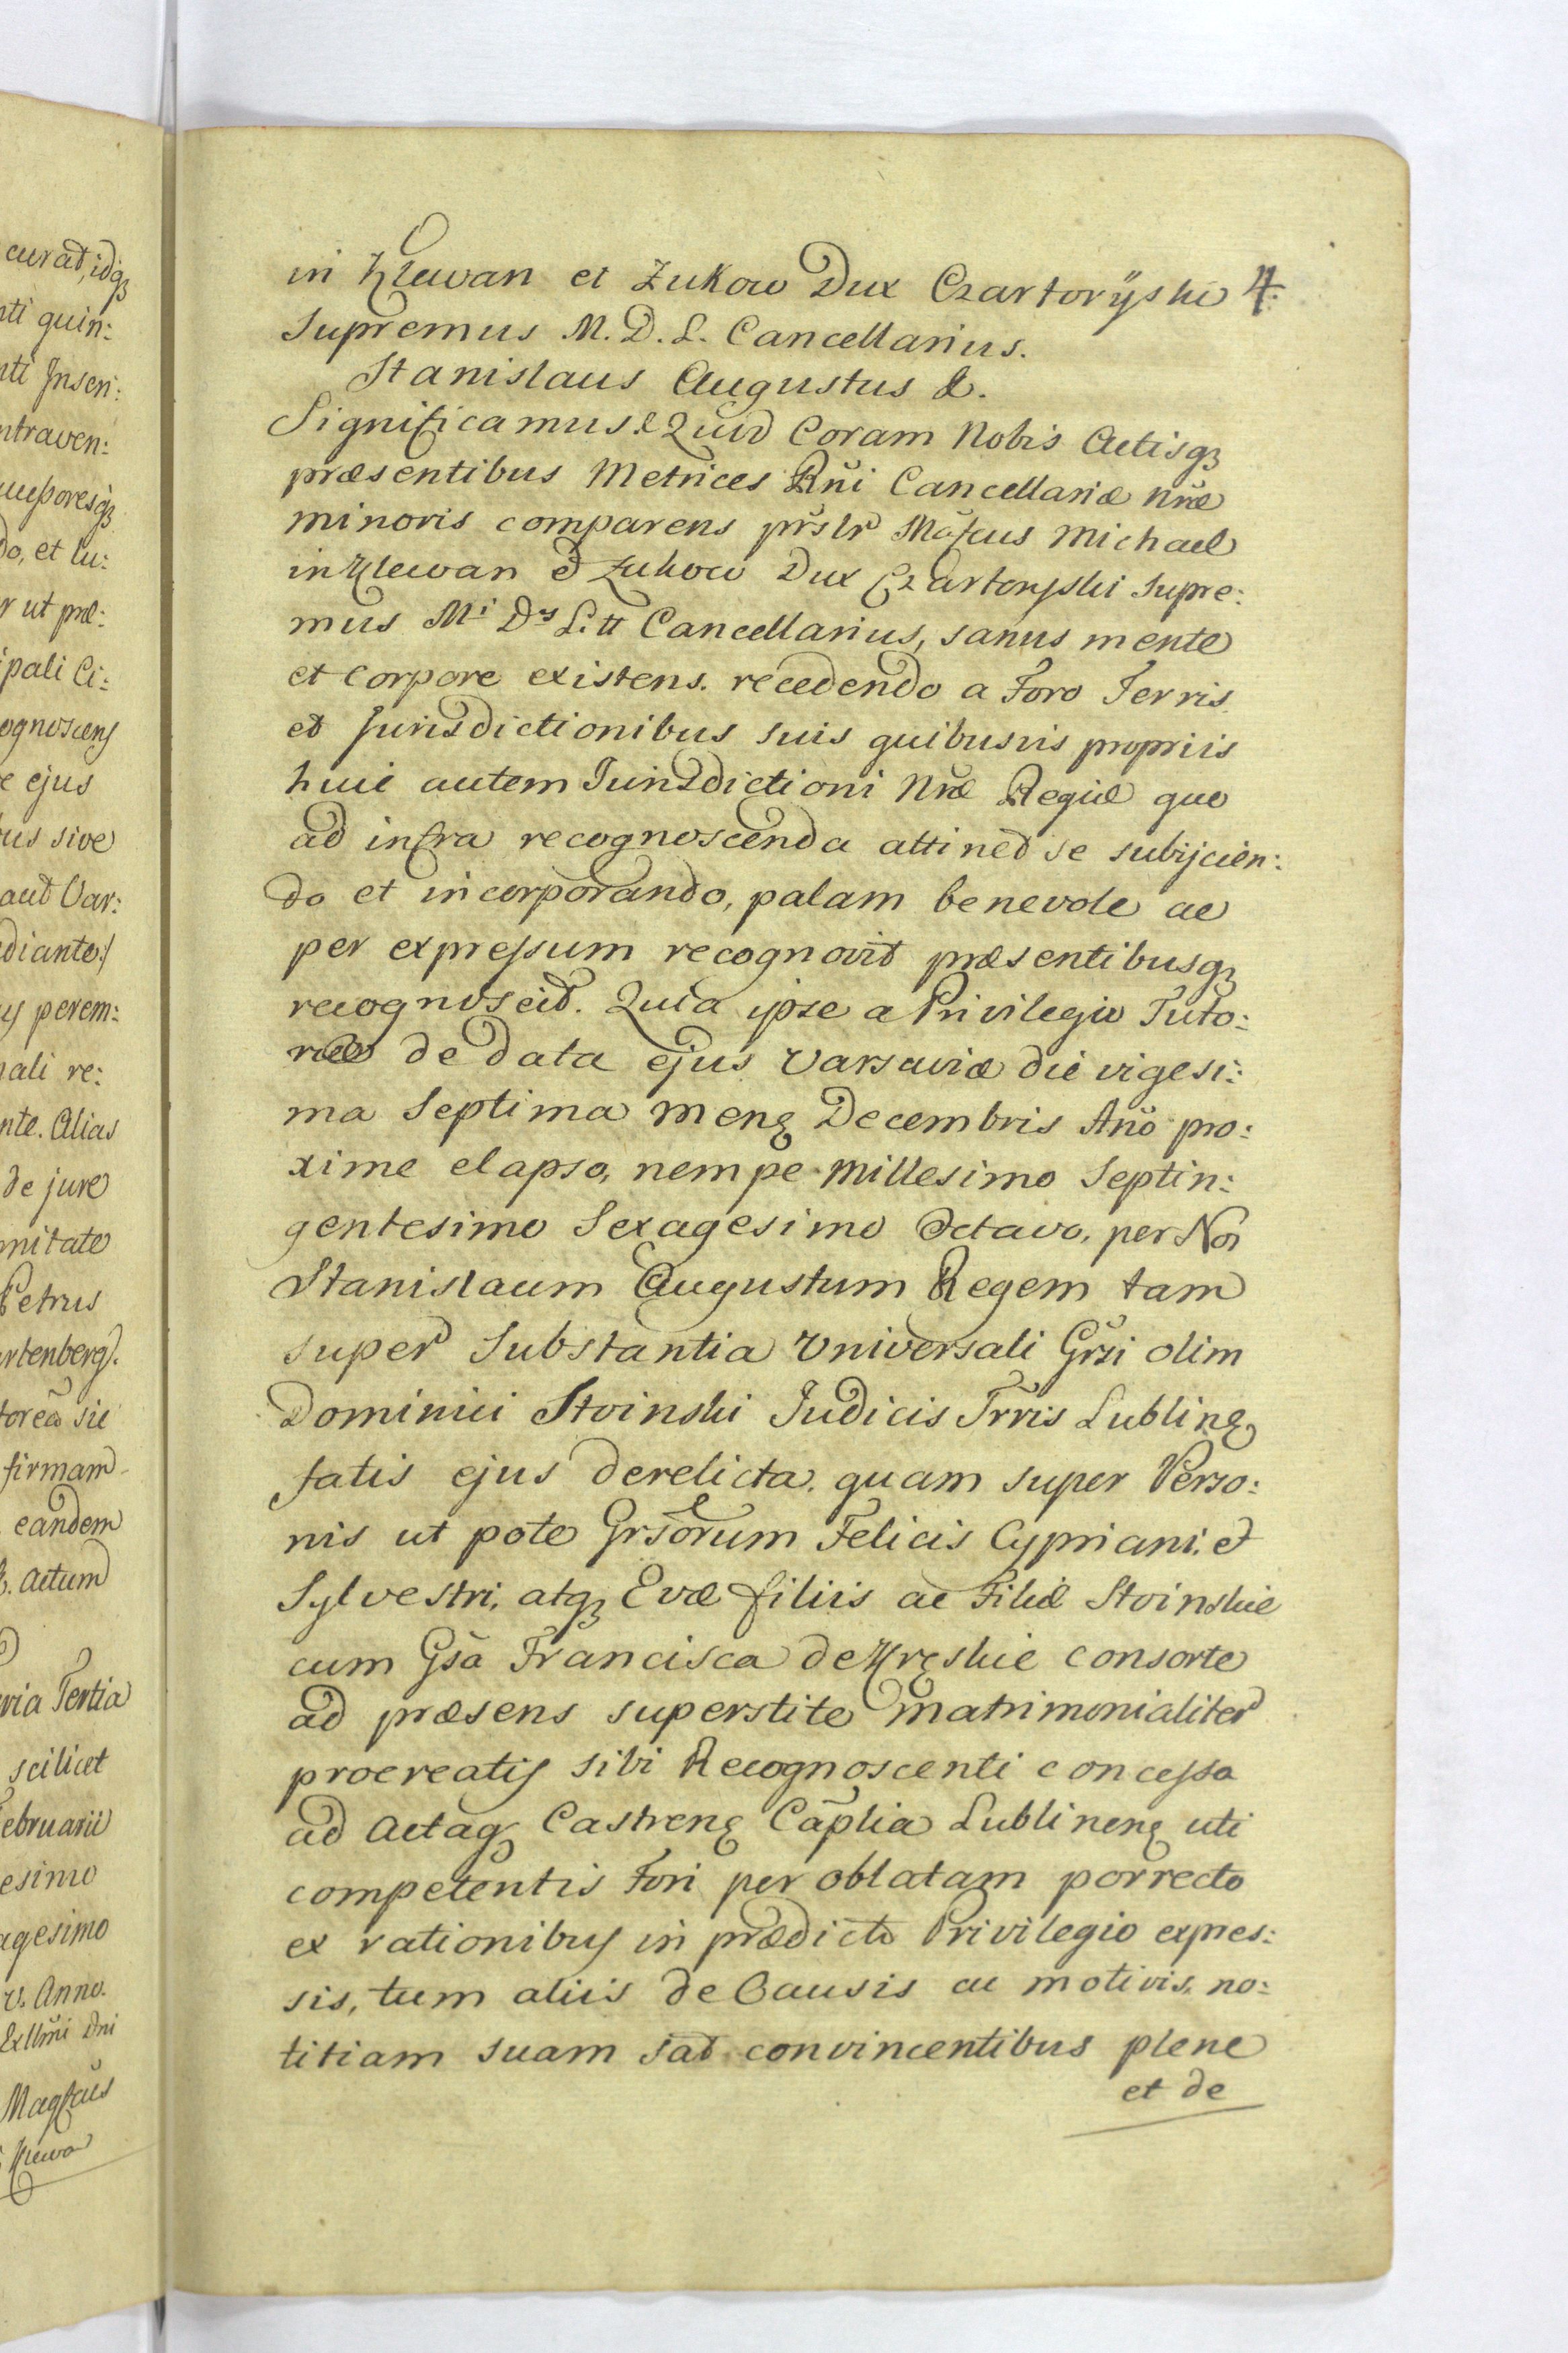 in Klewan et Zukow Dux Czartoryski 4.
Supremus M. D. L. Cancellarius.
Stanislaus Augustus &.
Significamus & Quid Coram Nobis Actisqȝ
præsentibus Metrices Rni Cancellariæ nræ
minoris comparens prslr Mgfcus Michael
in Klewan et Zukow Dux Czartoryski Supre:
mus Mi Ds Litt Cancellarius, sanus mente
et corpore existens. recedendo a Foro Terris
et Jurisdictionibus suis quibusvis propriis
huic autem Jurisdictioni Nræ Regiæ quo
ad infra recognoscenda attinet se subijcien:
do et incorporando, palam benevole ac
per expressum recognovit præsentibusqȝ
recognoscit. Quia ipse a Privilegio Tuto:
riæ de data ejus Varsaviæ die vigesi:
ma Septima mens Decembris Ano pro:
xime elapso, nempe Millesimo Septin:
gentesimo Sexagesimo Octavo, per Nos
Stanislaum Augustum Regem tam
super Substantia Universali Grsi olim
Dominici Stoinski Judicis Trris Lublins
fatis ejus derelicta. quam super Perso:
nis ut pote Grsorum Felicis Cypriani. et
Sylvestri, atqȝ Evæ filiis ac Filiæ Stoinskie
cum Gsa Francisca de Kręskie consorte
ad præsens superstite matrimonialiter
procreatis sibi Recognoscenti concesso
ad Actaq Castrens Caplia Lublinens uti
competentis Fori per oblatam porrecto
ex rationibus in prædicto Privilegio expres:
sis, tum aliis de Causis ac motivis. no:
titiam suam sat convincentibus plene
et de
curat, idqȝ
nti quin:
nti Inscri:
ntraven:
do, et lu:
r ut præ:
ipali Ci:
ognoscens
e ejus
us sive
aut Var:
diante/
us perem:
nali re:
nte. Alias
de jure
nitate
Petrus
rtenberg.
toreã sic
firmam
eandem
&. Actum
ria Tertia
scilicet
ebruarii
esimo
agesimo
v. Anno.
Exllmi Dni
Magfcus
Klewa